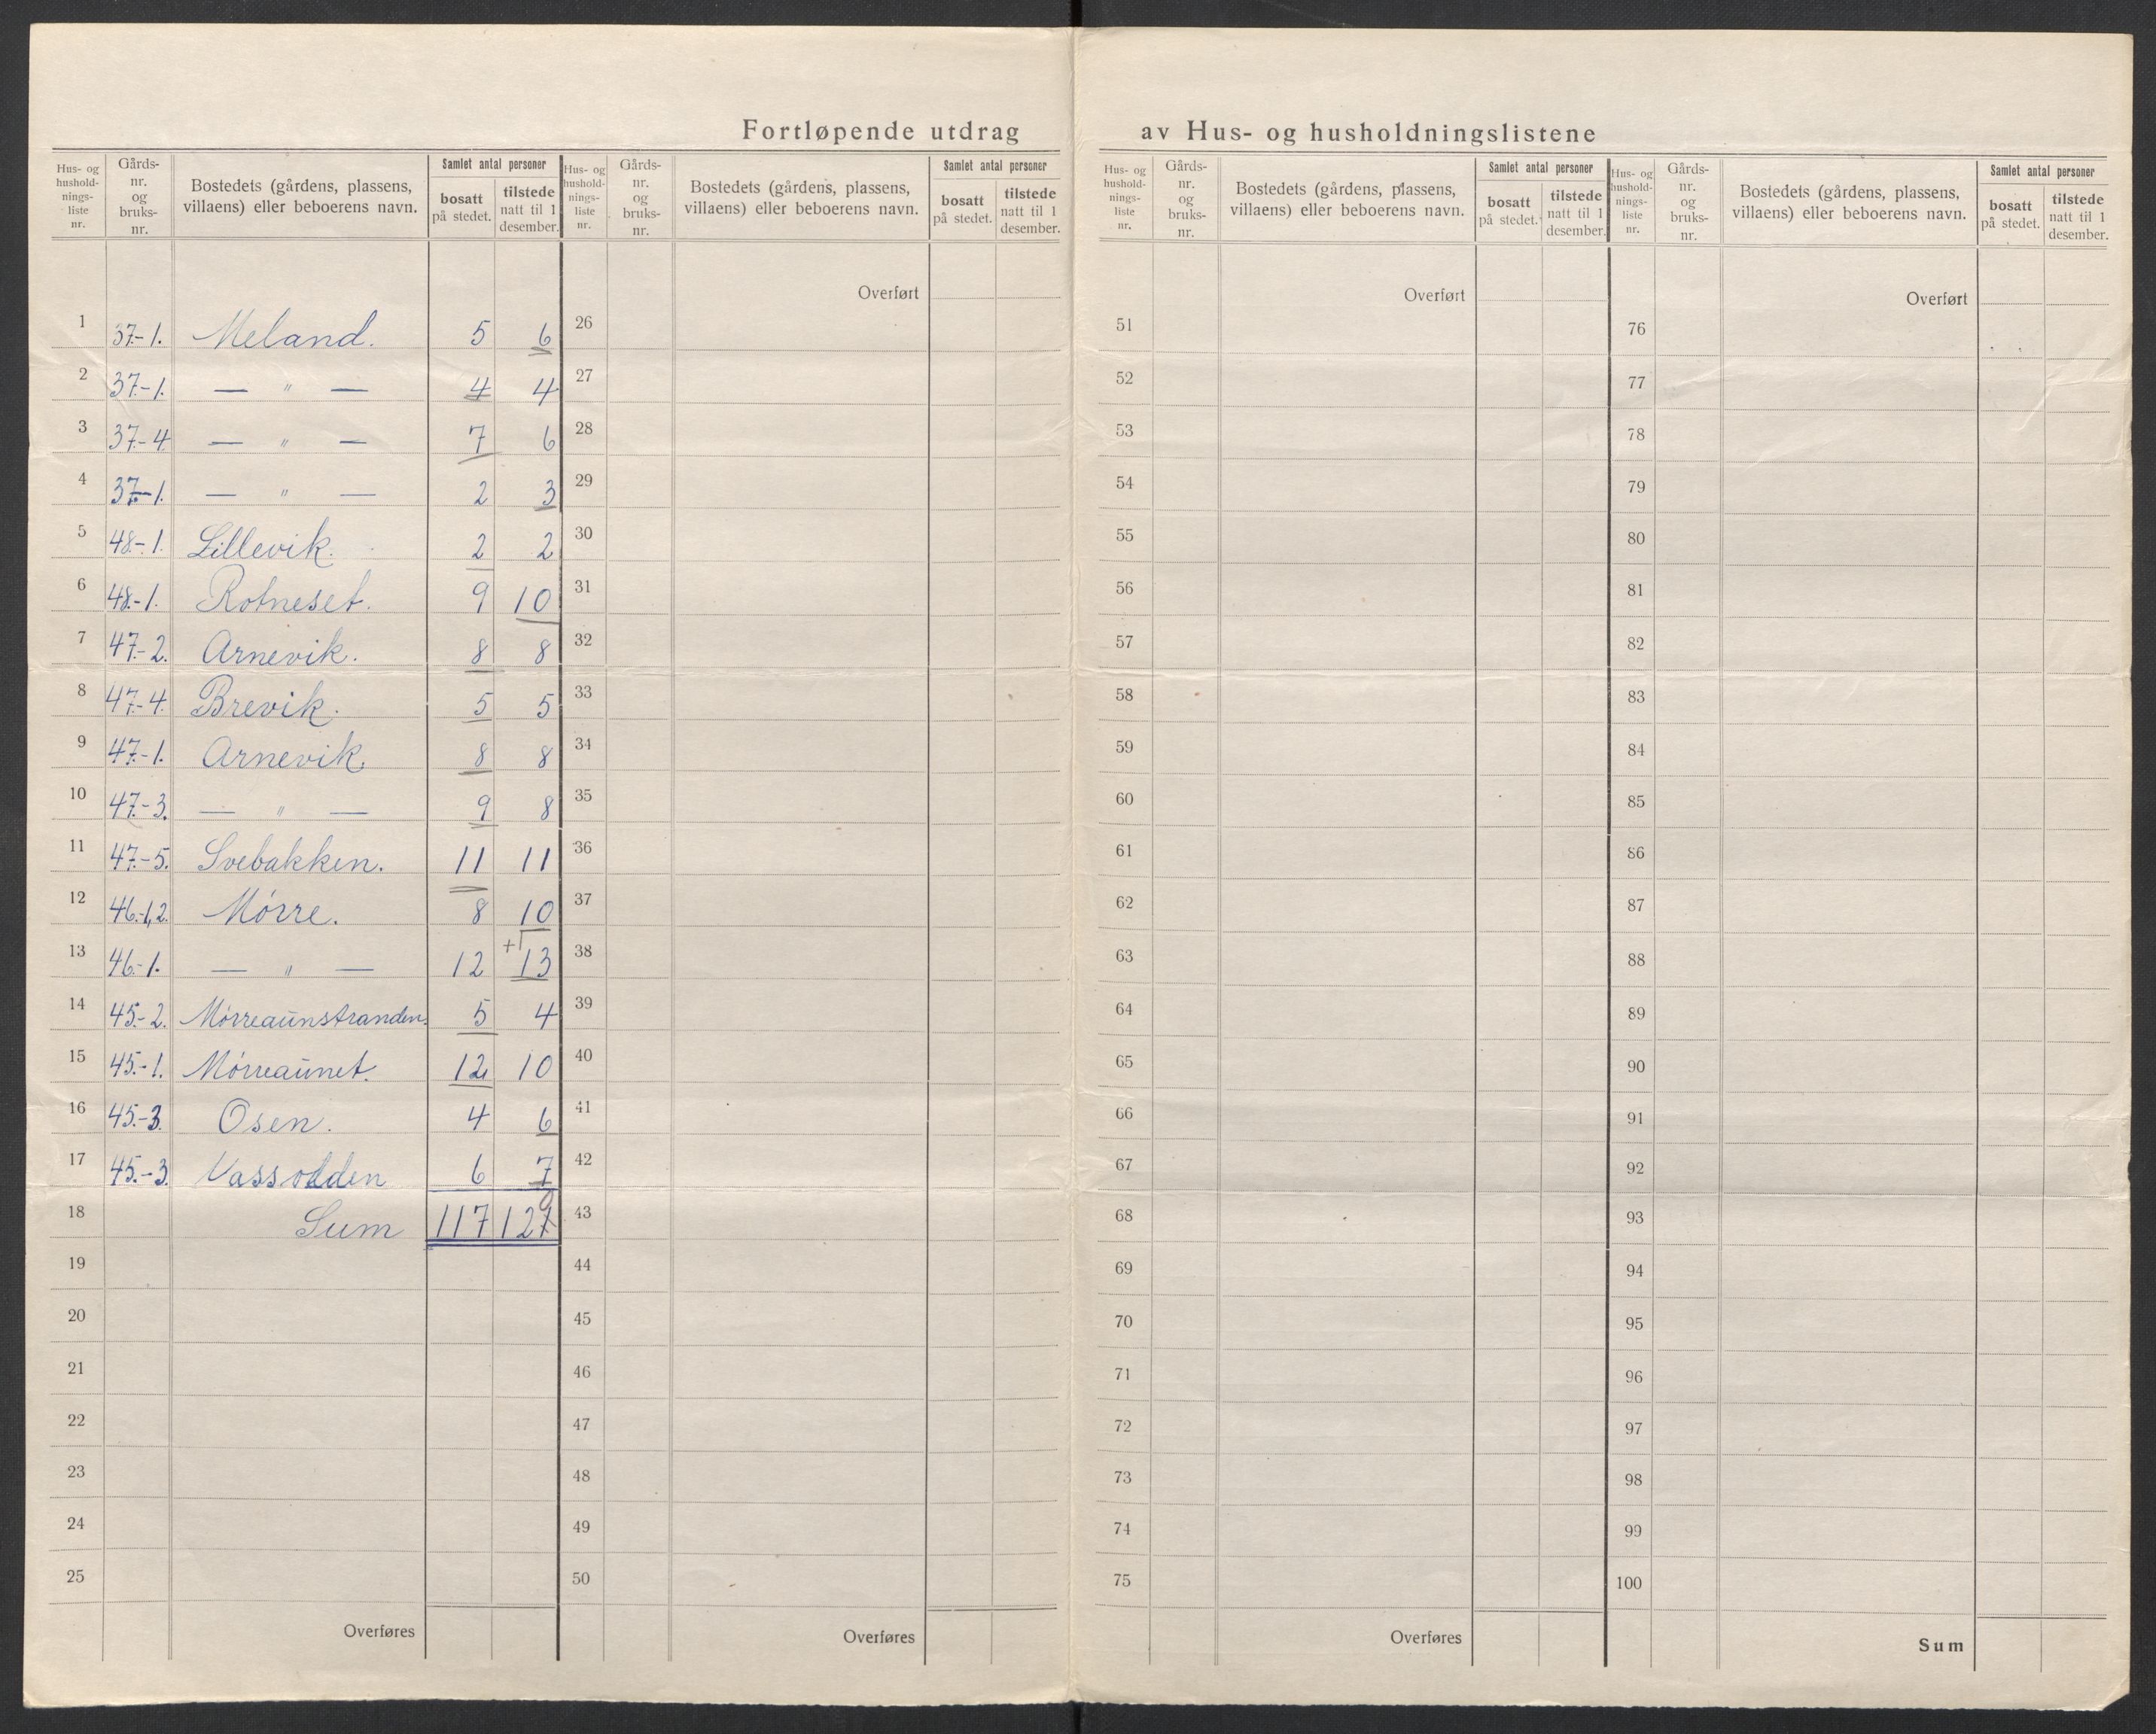 Fortløpende utdrag av Hus- og husholdningslistene
Hus- og hushold- nings- liste nr. | Gårds- nr. og bruks- nr. | Bostedets (gårdens, plassens, villaens) eller beboerens navn. | Samlet antal personer | bosatt på stedet. | tilstede natt til 1 desember.
1 37.-1. Meland. 5 6
2 37.-1. — " — 4 4
3 37.-4 — " — 7 6
4 37.-1. — " — 2 3
5 48.-1. Lillevik. 2 2
6 48.-1. Rotneset. 9 10
7 47.-2. Arnevik. 8 8
8 47.-4. Brevik. 5 5
9 47.-1. Arnevik. 8 8
10 47.-3. — " — 9 8
11 47.-5. Svebakken. 11 11
12 46.-1,2. Mørre. 8 10
13 46.-1. — " — 12 +1 13
14 45.-2. Mørreaunstranden. 5 4
15 45.-1. Mørreaunet. 12 10
16 45.-3. Osen. 4 6
17 45.-3. Vassodden 6 7
18 Sum 117
19
20
21
22
23
24
25
Overføres
Hus- og hushold- nings- liste nr. | Gårds- nr. og bruks- nr. | Bostedets (gårdens, plassens, villaens) eller beboerens navn. | Samlet antal personer | bosatt på stedet. | tilstede natt til 1 desember.
Overført
26
27
28
29
30
31
32
33
34
35
36
37
38
39
40
41
42
43
44
45
46
47
48
49
50
Overføres
Hus- og hushold- nings- liste nr. | Gårds- nr. og bruks- nr. | Bostedets (gårdens, plassens, villaens) eller beboerens navn. | Samlet antal personer | bosatt på stedet. | tilstede natt til 1 desember.
Overført
51
52
53
54
55
56
57
58
59
60
61
62
63
64
65
66
67
68
69
70
71
72
73
74
75
Overføres
Hus- og hushold- nings- liste nr. | Gårds- nr. og bruks- nr. | Bostedets (gårdens, plassens, villaens) eller beboerens navn. | Samlet antal personer | bosatt på stedet. | tilstede natt til 1 desember.
Overført
76
77
78
79
80
81
82
83
84
85
86
87
88
89
90
91
92
93
94
95
96
97
98
99
100
Sum